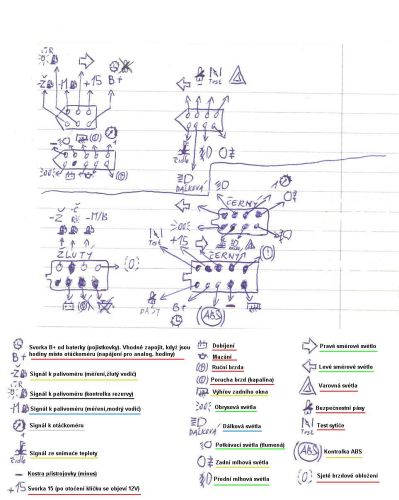 -Ž
-M
+15
B+
Test
Řídlo
300°
DÁLKOVÁ
-Ž
-M/B
ČERNÝ
Test
+15
ŽLUTÝ
ČERNÝ
PÁSY
B+
ABS
Svorka B+ od baterky (pojistkovky). Vhodné zapojit, když jsou
B+ hodiny místo otáčkoměru (napájení pro analog. hodiny)
-Ž Signál k palivoměru (měření,žlutý vodič)
Signál k palivoměru (kontrolka rezervy)
-M Signál k palivoměru (měření,modrý vodič)
Signál k otáčkoměru
Signál ze snímače teploty
Kostra přístrojovky (mínus)
+15 Svorka 15 (po otočení klíčku se objeví 12V)
Dobíjení
Mazání
Ruční brzda
Porucha brzd (kapalina)
Výhřev zadního okna
Obrysová světla
DÁLKOVÁ Dálková světla
Potkávací světla (tlumená)
Zadní mlhová světla
Přední mlhová světla
Pravé směrové světlo
Levé směrové světlo
Varovná světla
Bezpečnostní pásy
Test Test sytiče
ABS Kontrolka ABS
Sjeté brzdové obložení